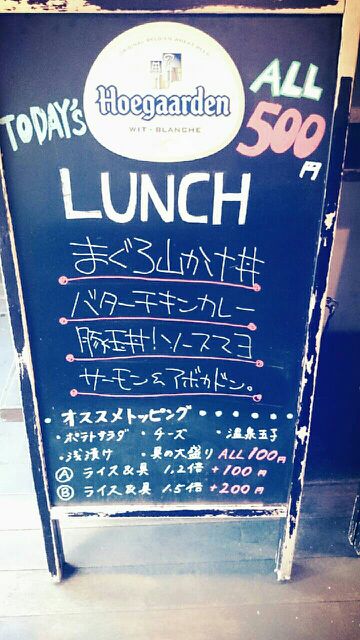 ORIGINAL BELGIAN WHEAT BEER
Hoegaarden
WIT - BLANCHE
TODAY'S
ALL
500円
LUNCH
まぐろ山かけ丼
バターチキンカレー
豚玉丼!ソースマヨ
サーモン&アボカドン。
・オススメトッピング・・・・・・
・ポテトサラダ ・チーズ ・温泉玉子
・浅漬け ・具の大盛り ALL 100円
Ⓐ ライス&具 1.2倍 +100円
Ⓑ ライス&具 1.5倍 +200円